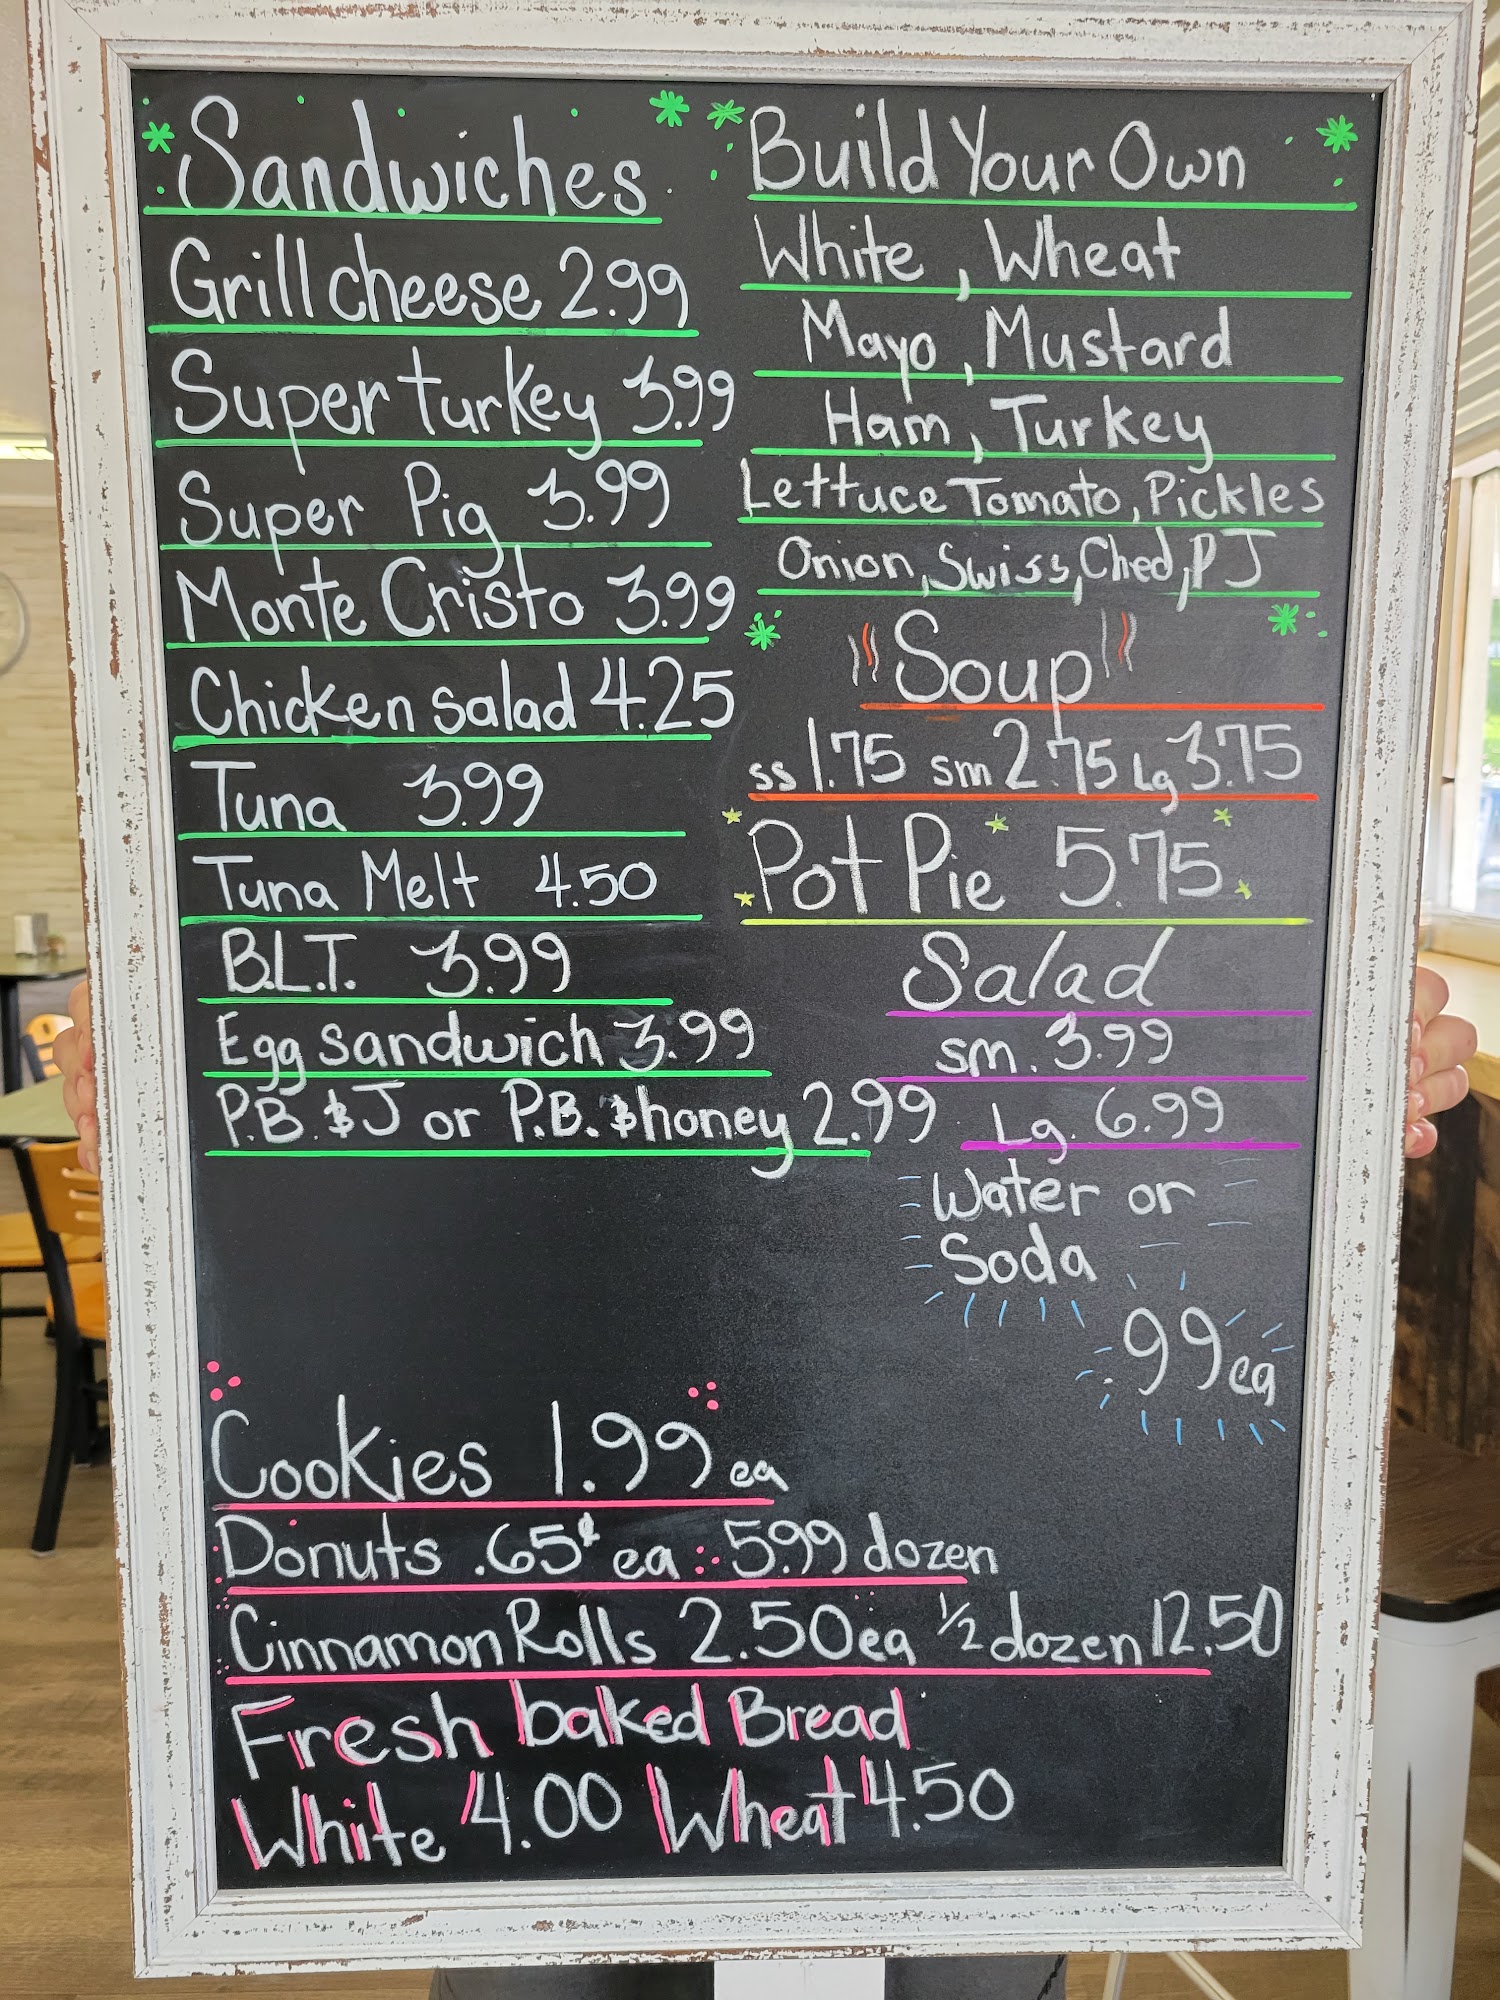 Sandwiches
Grill cheese 2.99
Super turkey 3.99
Super Pig 3.99
Monte Cristo 3.99
Chicken salad 4.25
Tuna 3.99
Tuna Melt 4.50
B.L.T. 3.99
Egg sandwich 3.99
P.B. & J or P.B. & honey 2.99
Build Your Own
White, Wheat
Mayo, Mustard
Ham, Turkey
Lettuce Tomato, Pickles
Onion, Swiss, Ched, PJ
Soup
ss 1.75 sm 2.75 Lg 3.75
Pot Pie 5.75
Salad
sm. 3.99
Lg. 6.99
Water or
Soda
.99 ea
Cookies 1.99 ea
Donuts .65¢ ea : 5.99 dozen
Cinnamon Rolls 2.50 ea 1/2 dozen 12.50
Fresh baked Bread
White 4.00 Wheat 4.50